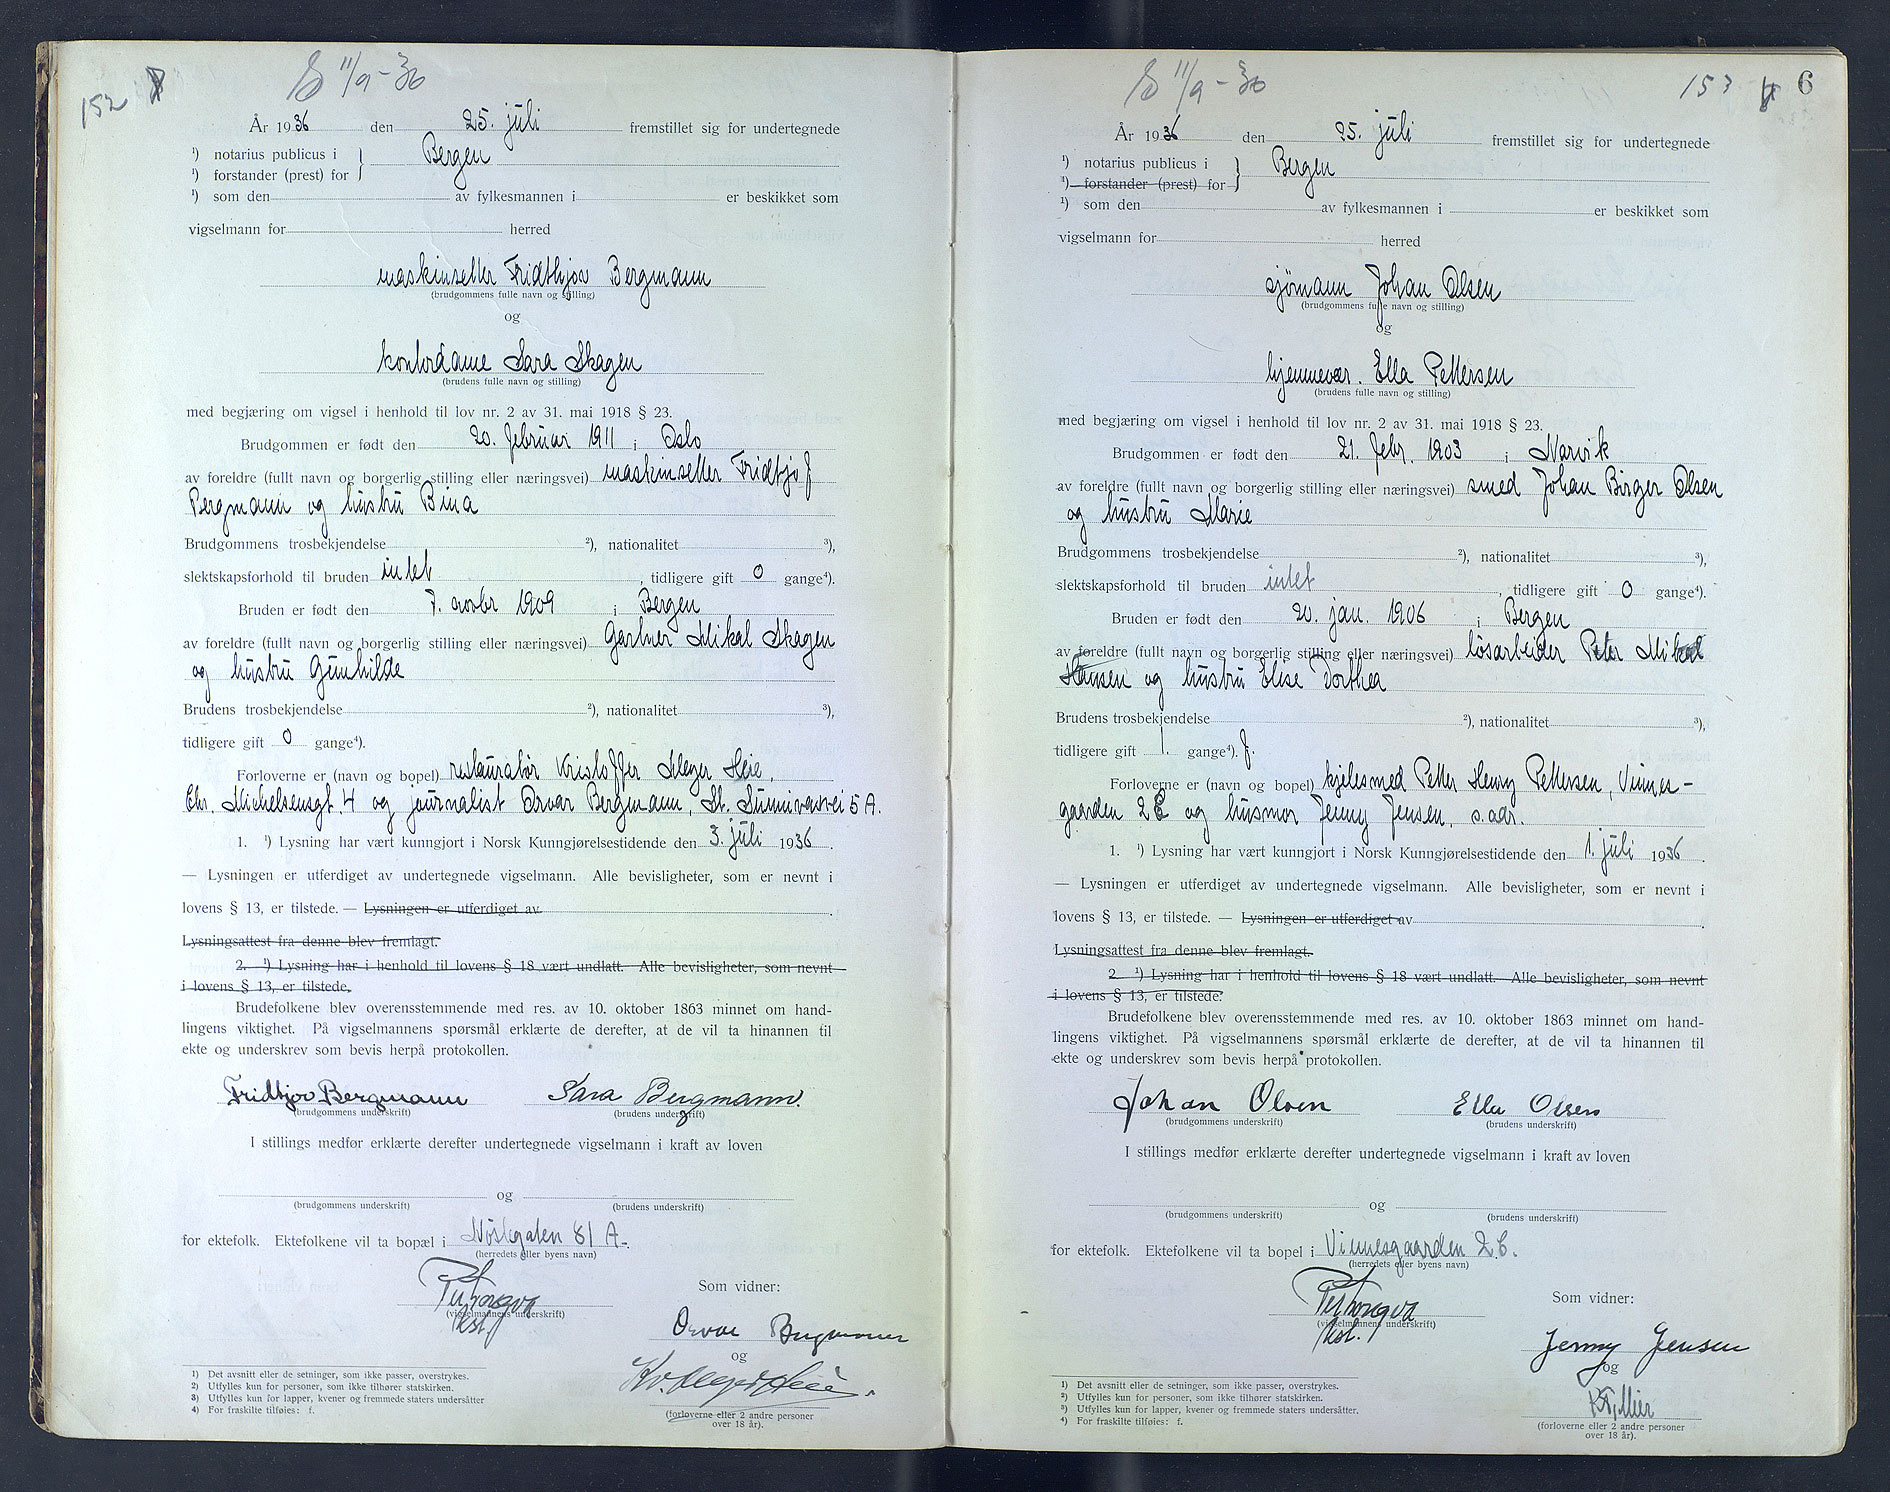 152
11/9 - 36
År 1936 den 25. juli fremstillet sig for undertegnede
¹) notarius publicus i } Bergen
¹) forstander (prest) for
¹) som den av fylkesmannen i er beskikket som
vigselmann for herred
maskinsetter Fridthjov Bergmann
(brudgommens fulle navn og stilling)
og
kontordame Sara Skagen
(brudens fulle navn og stilling)
med begjæring om vigsel i henhold til lov nr. 2 av 31. mai 1918 § 23.
Brudgommen er født den 20. februar 1911 i Oslo
av foreldre (fullt navn og borgerlig stilling eller næringsvei) maskinsetter Fridtjof
Bergmann og hustru Bina
Brudgommens trosbekjendelse ²), nationalitet ³),
slektskapsforhold til bruden intet, tidligere gift 0 gange⁴).
Bruden er født den 7. novbr 1909 i Bergen
av foreldre (fullt navn og borgerlig stilling eller næringsvei) Gartner Mikal Skagen
og hustru Gunhilde
Brudens trosbekjendelse ²), nationalitet ³),
tidligere gift 0 gange⁴).
Forloverne er (navn og bopel) restauratør Kristoffer Meyer Heie,
Chr. Michelsensgt. 4 og journalist Orvar Bergmann, St. Sunnivasvei 5 A.
1. ¹) Lysning har vært kunngjort i Norsk Kunngjørelsestidende den 3. juli 1936.
— Lysningen er utferdiget av undertegnede vigselmann. Alle bevisligheter, som er nevnt i
lovens § 13, er tilstede. — Lysningen er utferdiget av
Lysningsattest fra denne blev fremlagt.
2. ¹) Lysning har i henhold til lovens § 18 vært undlatt. Alle bevisligheter, som nevnt
i lovens § 13, er tilstede.
Brudefolkene blev overensstemmende med res. av 10. oktober 1863 minnet om hand-
lingens viktighet. På vigselmannens spørsmål erklærte de derefter, at de vil ta hinannen til
ekte og underskrev som bevis herpå protokollen.
Fridtjov Bergmann Sara Bergmann.
(brudgommens underskrift) (brudens underskrift)
I stillings medfør erklærte derefter undertegnede vigselmann i kraft av loven
og
(brudgommens underskrift) (brudens underskrift)
for ektefolk. Ektefolkene vil ta bopæl i Nöstegaten 81 A.
(herredets eller byens navn)
(vigselmannens underskrift)
Som vidner:
Orvar Bergmann
og
(forloverne eller 2 andre personer
over 18 år).
1) Det avsnitt eller de setninger, som ikke passer, overstrykes.
2) Utfylles kun for personer, som ikke tilhører statskirken.
3) Utfylles kun for lapper, kvener og fremmede staters undersåtter
4) For fraskilte tilføies: f.
11/9 - 36
153
6
År 1936 den 25. juli fremstillet sig for undertegnede
¹) notarius publicus i } Bergen
¹) forstander (prest) for
¹) som den av fylkesmannen i er beskikket som
vigselmann for herred
sjømann Johan Olsen
(brudgommens fulle navn og stilling)
og
hjemmevær. Ella Pettersen
(brudens fulle navn og stilling)
med begjæring om vigsel i henhold til lov nr. 2 av 31. mai 1918 § 23.
Brudgommen er født den 21. febr. 1903 i Narvik
av foreldre (fullt navn og borgerlig stilling eller næringsvei) smed Johan Birger Olsen
og hustru Marie
Brudgommens trosbekjendelse ²), nationalitet ³),
slektskapsforhold til bruden intet, tidligere gift 0 gange⁴).
Bruden er født den 20. jan. 1906 i Bergen
av foreldre (fullt navn og borgerlig stilling eller næringsvei) løsarbeider Peter Mikal
Hansen og hustru Elise Dorthea
Brudens trosbekjendelse ²), nationalitet ³),
tidligere gift 1. gange⁴). f.
Forloverne er (navn og bopel) kjelesmed Petter Henry Pettersen, Vinnes-
gaarden 2 C og husmor Jenny Jensen, s. adr.
1. ¹) Lysning har vært kunngjort i Norsk Kunngjørelsestidende den 1. juli 1936.
— Lysningen er utferdiget av undertegnede vigselmann. Alle bevisligheter, som er nevnt i
lovens § 13, er tilstede. — Lysningen er utferdiget av
Lysningsattest fra denne blev fremlagt.
2. ¹) Lysning har i henhold til lovens § 18 vært undlatt. Alle bevisligheter, som nevnt
i lovens § 13, er tilstede.
Brudefolkene blev overensstemmende med res. av 10. oktober 1863 minnet om hand-
lingens viktighet. På vigselmannens spørsmål erklærte de derefter, at de vil ta hinannen til
ekte og underskrev som bevis herpå protokollen.
Johan Olsen Ella Olsen
(brudgommens underskrift) (brudens underskrift)
I stillings medfør erklærte derefter undertegnede vigselmann i kraft av loven
og
(brudgommens underskrift) (brudens underskrift)
for ektefolk. Ektefolkene vil ta bopel i Vinnesgaarden 2 C.
(herredets eller byens navn)
(vigselmannens underskrift)
Som vidner:
Jenny Jensen
og
(forloverne eller 2 andre personer
over 18 år).
1) Det avsnitt eller de setninger, som ikke passer, overstrykes.
2) Utfylles kun for personer, som ikke tilhører statskirken.
3) Utfylles kun for lapper, kvener og fremmede staters undersåtter.
4) For fraskilte tilføies: f.